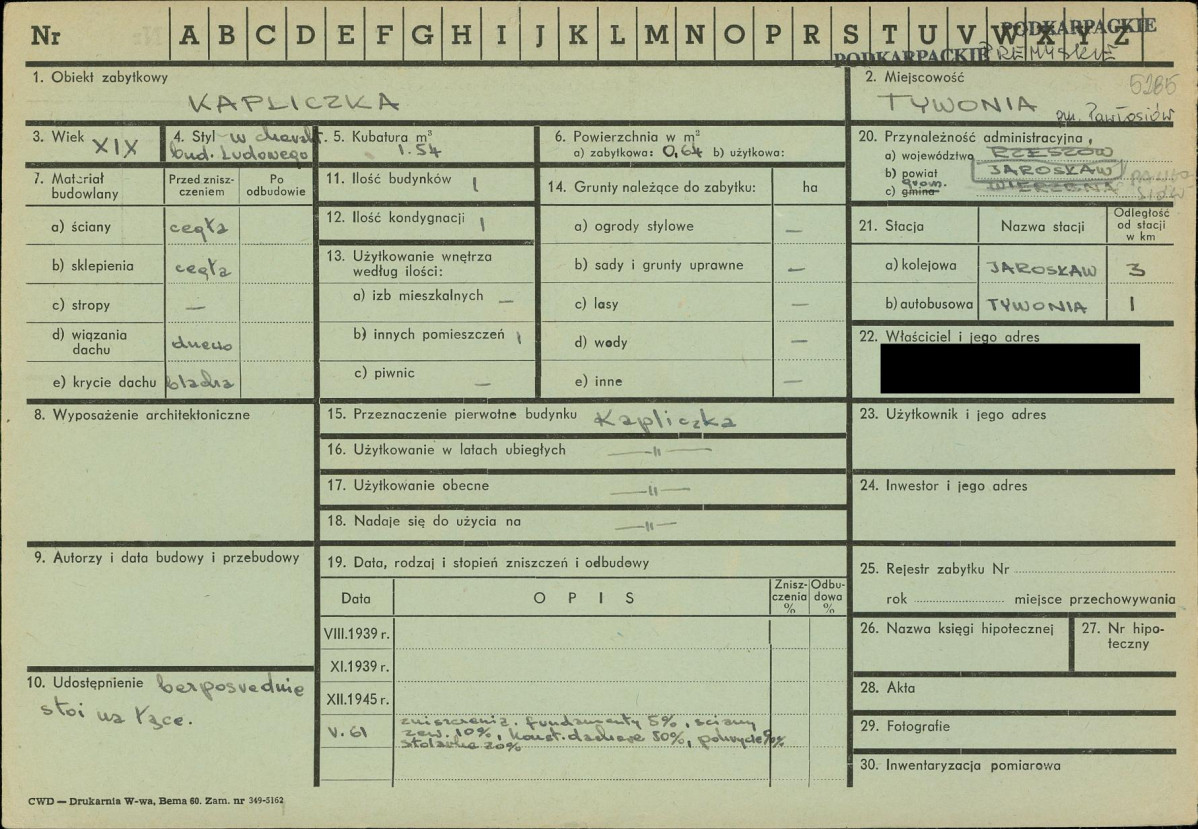 Nr A B C D E F G H I J K L M N O P R S T U V W X Y Z
PODKARPACKIE
PODKARPACKIE PRZEMYSKIE
1. Obiekt zabytkowy
KAPLICZKA
2. Miejscowość
5285
TYWONIA
gm. Pawłosiów
3. Wiek XIX
4. Styl w charakt.
bud. ludowego
5. Kubatura m³
1.54
6. Powierzchnia w m²
a) zabytkowa: 0,64 b) użytkowa:
20. Przynależność administracyjna,
a) województwo RZESZÓW
b) powiat JAROSŁAW
c) gmina grom. WIERZBNA PAWŁO
SIÓW
7. Materiał budowlany
Przed znisz-
czeniem
Po
odbudowie
a) ściany cegła
b) sklepienia cegła
c) stropy —
d) wiązania
dachu drewno
e) krycie dachu blacha
11. Ilość budynków 1
12. Ilość kondygnacji 1
13. Użytkowanie wnętrza
według ilości:
a) izb mieszkalnych —
b) innych pomieszczeń 1
c) piwnic —
14. Grunty należące do zabytku: ha
a) ogrody stylowe —
b) sady i grunty uprawne —
c) lasy —
d) wody —
e) inne —
21. Stacja Nazwa stacji
Odległość
od stacji
w km
a) kolejowa JAROSŁAW 3
b) autobusowa TYWONIA 1
22. Właściciel i jego adres
8. Wyposażenie architektoniczne
15. Przeznaczenie pierwotne budynku Kapliczka
16. Użytkowanie w latach ubiegłych —"—
17. Użytkowanie obecne —"—
18. Nadaje się do użycia na —"—
23. Użytkownik i jego adres
24. Inwestor i jego adres
9. Autorzy i data budowy i przebudowy
19. Data, rodzaj i stopień zniszczeń i odbudowy
Data OPIS
Znisz-
czenia
%
Odbu-
dowa
%
VIII.1939 r.
XI.1939 r.
XII.1945 r.
V. 61 zniszczenia. fundamenty 5%, ściany
zew. 10%, konst. dachowe 50%, pokrycie 50%
stolarka 20%
10. Udostępnienie bezpośrednie
stoi na łące.
25. Rejestr zabytku Nr
rok miejsce przechowywania
26. Nazwa księgi hipotecznej
27. Nr hipo-
teczny
28. Akta
29. Fotografie
30. Inwentaryzacja pomiarowa
CWD — Drukarnia W-wa, Bema 60. Zam. nr 349-5162